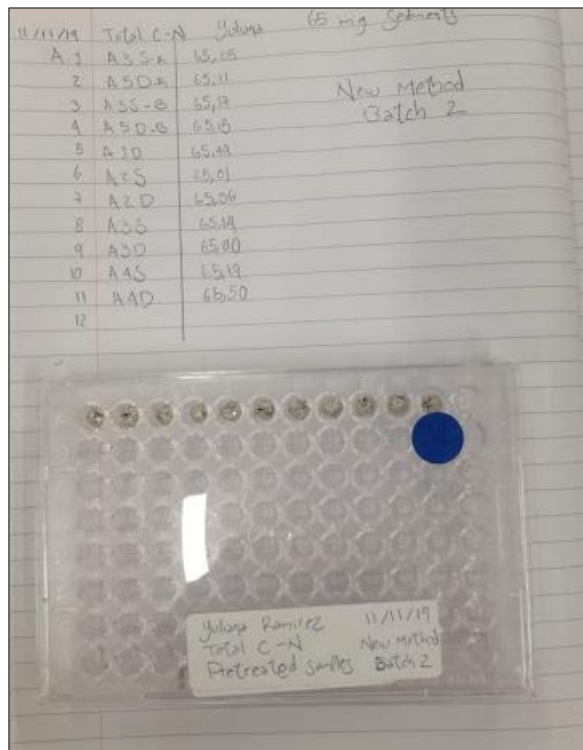 11/11/19 Total C-N Yuliana 65 mg Sediments
A 1 A5S-A 65,05
2 A5D-A 65,11
New Method
3 A5S-B 65,17
Batch 2
4 A5D-B 65,15
5 A1D 65,49
6 A2S 65,01
7 A2D 65,56
8 A3S 65,14
9 A3D 65,00
10 A4S 65,19
11 A4D 65,50
12
Yuliana Ramirez 11/11/19
Total C-N New Method
Pretreated samples Batch 2